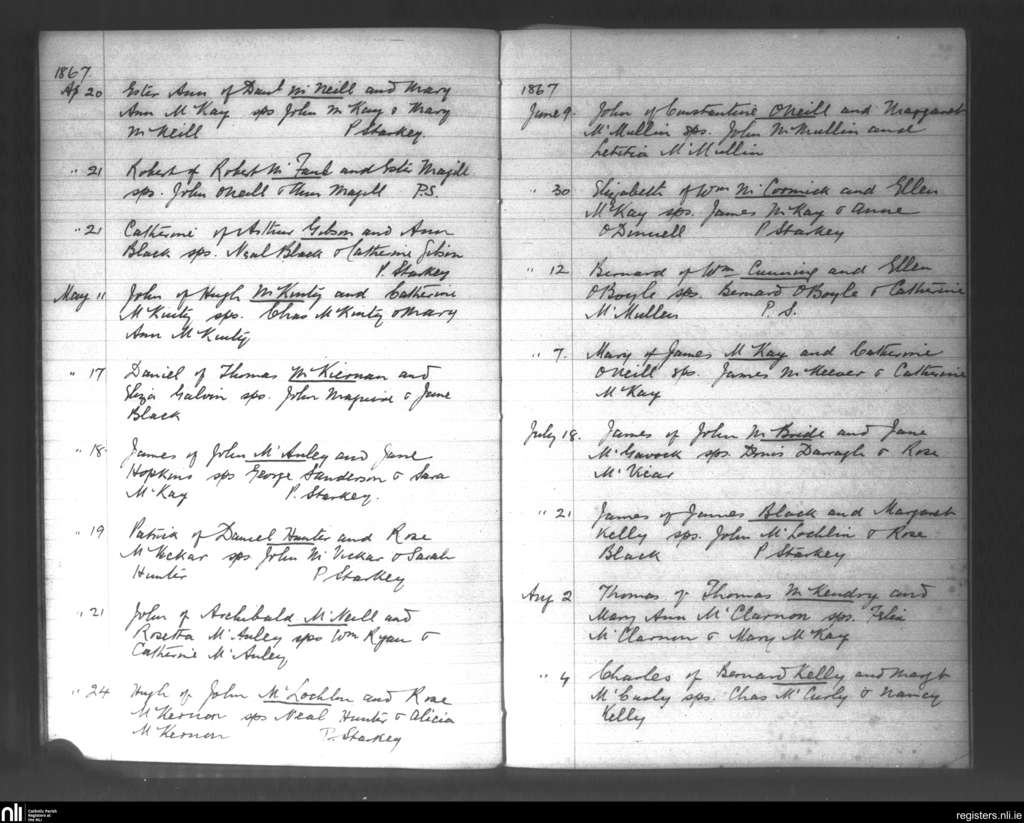 1867
Ap 20 Ester Ann of Danl McNeill and Mary
Ann McKay sps John McKay & Mary
McNeill P Starkey.
" 21 Robert of Robert McFaul and Ester Magill
sps. John ONeill & Magill P.S.
" 21 Catherine of Arthur Gibson and Ann
Black sps. Neal Black & Catherine Gibson
P. Starkey
May 11 John of Hugh McKinty and Catherine
McKinty sps. Chas McKinty & Mary
Ann McKinty
" 17 Daniel of Thomas McKiernan and
Eliza Galvin sps. John Maguire & Jane
Black
" 18 James of John McAuley and Jane
Hopkins sps George Sanderson & Sara
McKay P. Starkey.
" 19 Patrick of Daniel Hunter and Rose
McVickar sps John McVickar & Sarah
Hunter P Starkey
" 21 John of Archibald McNeill and
Rosetta McAuley sps Wm Ryan &
Catherine McAuley
" 24 Hugh of John McLochlin and Rose
McKernon sps Neal Hunter & Alicia
McKernon P. Starkey
1867
June 9. John of Constantine ONeill and Margaret
McMullin sps. John McMullin and
Letitia McMullin
" 30 Elizabeth of Wm McCormick and Ellen
McKay sps. James McKay & Anne
ODonnell P Starkey
" 12 Bernard of Wm Cunning and Ellen
OBoyle sps. Bernard OBoyle & Catherine
McMullen P. S.
" 7. Mary of James McKay and Catherine
ONeill sps. James McKeever & Catherine
McKay
July 18. James of John McBride and Jane
McGavock sps. Denis Darragh & Rose
McVicar
" 21 James of James Black and Margaret
Kelly sps. John McLochlin & Rose
Black P Starkey
Aug 2 Thomas of Thomas McKendry and
Mary Ann McClarnon sps. Felix
McClarnon & Mary McKay
" 4 Charles of Bernard Kelly and Margt
McCurly sps. Chas McCurly & Nancy
Kelly
nli Catholic Parish
Registers at
the NLI
registers.nli.ie